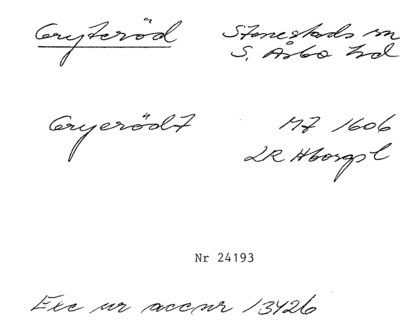 Gryteröd Stenestads sn
S. Åsbo hd
Gryerödt MJ 1606
LR Hborgsl
Nr 24193
Exc ur accnr 13426